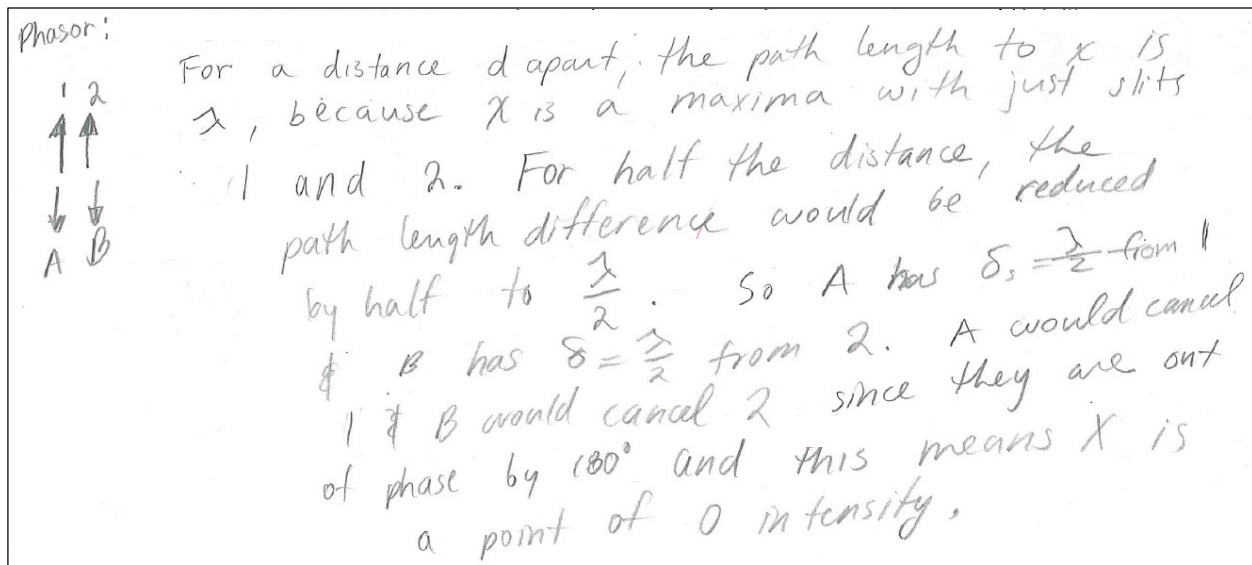 Phasor:
1 2
A B
For a distance d apart, the path length to x is
λ, because x is a maxima with just slits
1 and 2. For half the distance, the
path length difference would be reduced
by half to λ/2. So A has δ, = λ/2 from 1
& B has δ = λ/2 from 2. A would cancel
1 & B would cancel 2 since they are out
of phase by 180° and this means X is
a point of 0 intensity.